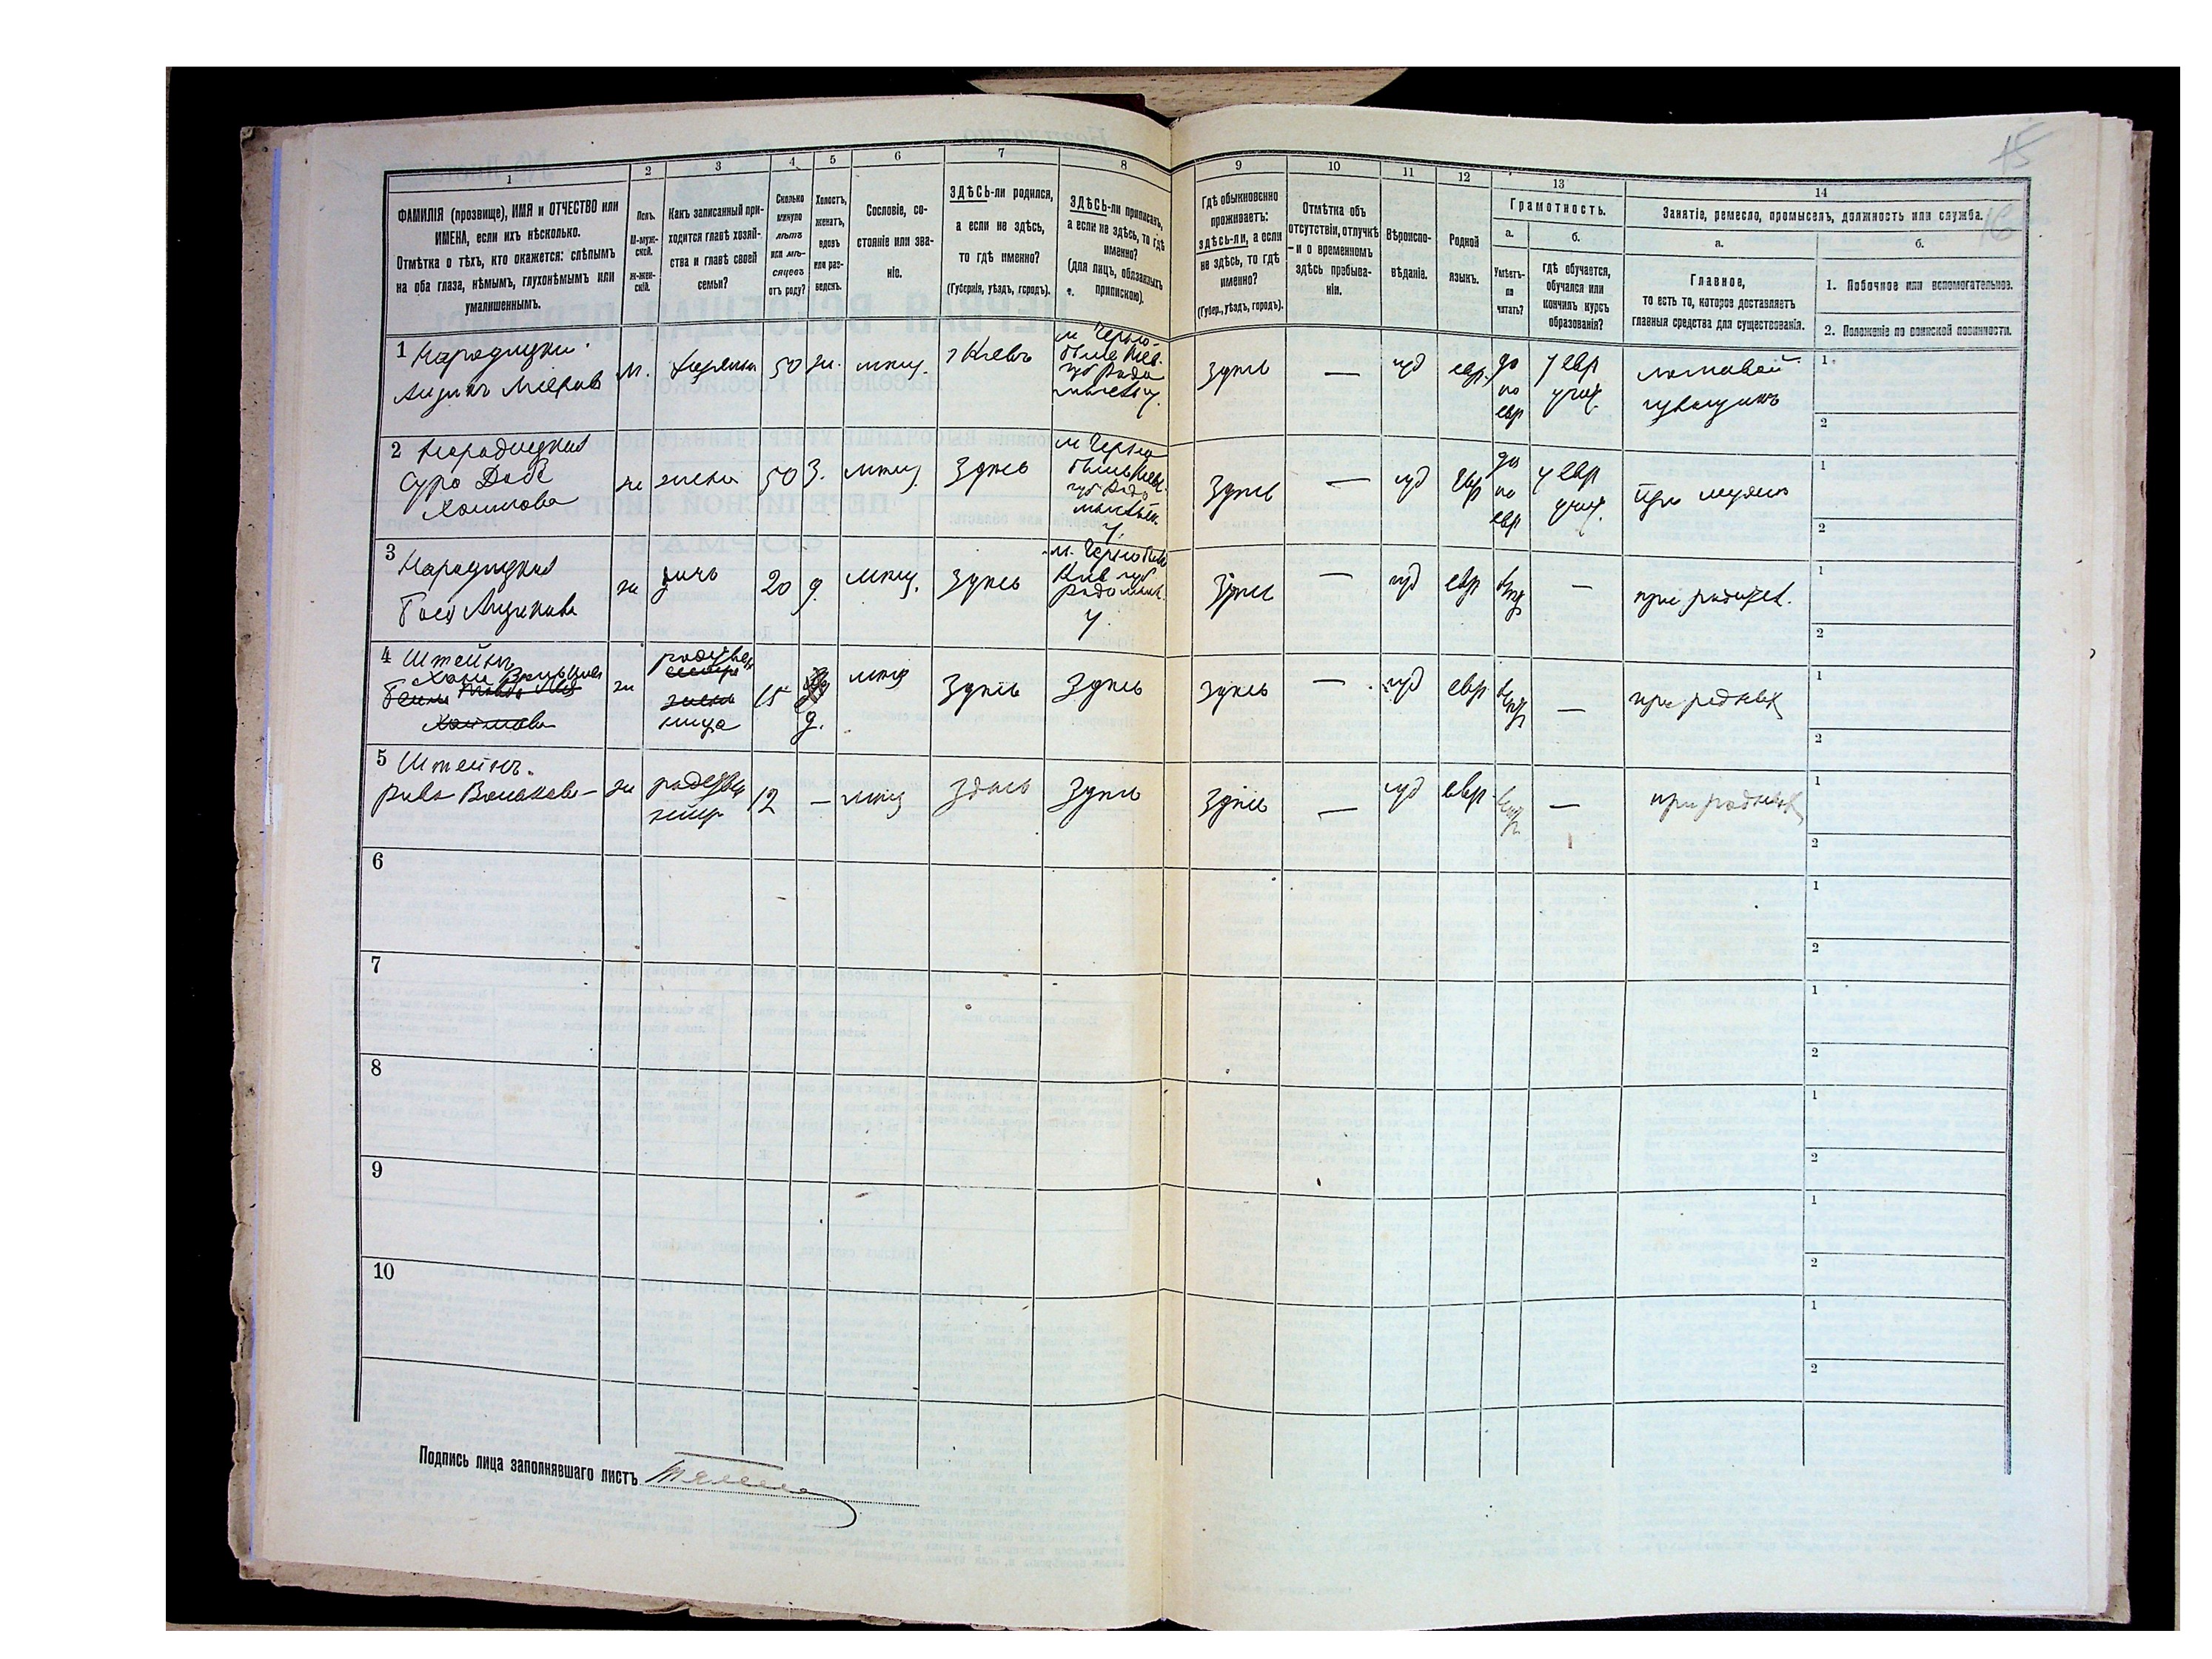 15
16
1
2
3
4
5
6
7
8
9
10
11
12
13
14
ФАМИЛІЯ (прозвище), ИМЯ и ОТЧЕСТВО или
ИМЕНА, если ихъ нѣсколько.
Отмѣтка о тѣхъ, кто окажется: слѣпымъ
на оба глаза, нѣмымъ, глухонѣмымъ или
умалишеннымъ.
Полъ.
М-муж-
ской.
Ж-жен-
скій.
Какъ записанный при-
ходится главѣ хозяй-
ства и главѣ своей
семьи?
Сколько
минуло
лѣтъ
или мѣ-
сяцевъ
отъ роду?
Холостъ,
женатъ,
вдовъ
или раз-
веденъ.
Сословіе, со-
стояніе или зва-
ніе.
ЗДѢСЬ-ли родился,
а если не здѣсь,
то гдѣ именно?
(Губернія, уѣздъ, городъ).
ЗДѢСЬ-ли приписанъ,
а если не здѣсь, то гдѣ
именно?
(для лицъ, обязанныхъ
припискою).
Гдѣ обыкновенно
проживаетъ:
здѣсь-ли, а если
не здѣсь, то гдѣ
именно?
(Губер., уѣздъ, городъ).
Отмѣтка объ
отсутствіи, отлучкѣ
и о временномъ
здѣсь пребыва-
ніи.
Вѣроиспо-
вѣданіе.
Родной
языкъ.
Грамотность.
а.
Умѣетъ-
ли
читать?
б.
гдѣ обучается,
обучался или
кончилъ курсъ
образованія?
Занятіе, ремесло, промыселъ, должность или служба.
а.
Главное,
то есть то, которое доставляетъ
главныя средства для существованія.
б.
1. Побочное или вспомогательное.
2. Положеніе по воинской повинности.
1 Народицкій
Айзикъ Меерова М. хозяинъ 50 ж. мѣщ. г Кіевъ
м Черно-
быле Кіев.
губ Радо
мысль у.
здѣсь — іуд евр. да
по
евр
у евр
учит.
1
2
2 Народицкая
Сура Доба
Хаимова ж жена 50 З. мѣщ. Здѣсь
м Черно
быль Кіев.
губ Радо
мысль
у.
Здѣсь — іуд Евр да
по
евр
у евр
учит. При мужѣ
1
2
3 Народицкая
Бася Айзикова ж дочь 20 д. мѣщ. Здѣсь
м. Чернобыль
Кіев губ
Радомысл.
у.
Здѣсь — іуд евр — при родител.
1
2
4 Штейнъ
Хаимова
ж 15 д. мѣщ Здѣсь Здѣсь здѣсь — іуд евр — при родных
1
2
5 Штейнъ.
Рива ж 12 — мѣщ Здѣсь Здѣсь Здѣсь — іуд евр — при родных
1
2
6
1
2
7
1
2
8
1
2
9
1
2
10
1
2
Подпись лица заполнявшаго листъ